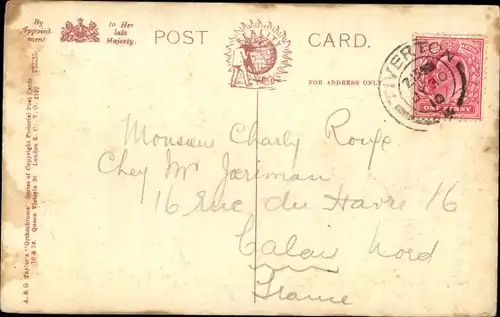 By
Appoint
ment
to Her
late
Majesty.
POST
REALITY
CARD.
FOR ADDRESS ONLY
ONE PENNY
A. & G. Taylor's "Orthochrome" Series of Copyright Pictorial Post Cards
78 & 78 Queen Victoria St London E.C.
Monsieur Charly Rouge
Chey Mr
16 rue du Havre 16
Calais Nord
France